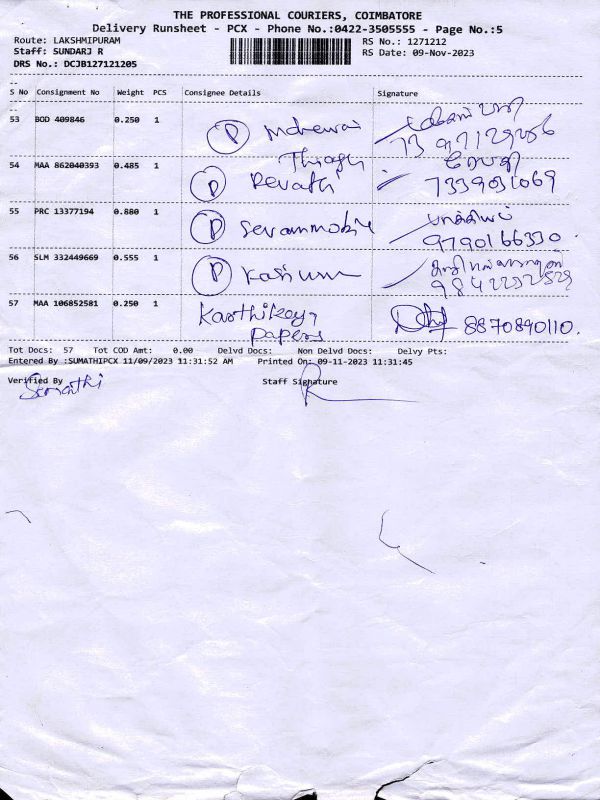 THE PROFESSIONAL COURIERS, COIMBATORE
Delivery Runsheet - PCX - Phone No.:0422-3505555 - Page No.:5
Route: LAKSHMIPURAM RS No.: 1271212
Staff: SUNDARJ R RS Date: 09-Nov-2023
DRS No.: DCJB127121205
S No Consignment No Weight PCS Consignee Details Signature
53 BOD 409846 0.250 1 P
54 MAA 862040393 0.485 1 P Revathi ரேவதி
7339031069
55 PRC 13377194 0.880 1 P
9790166330
56 SLM 332449669 0.555 1 P
57 MAA 106852581 0.250 1 Karthikeya
papers 8870890110.
Tot Docs: 57 Tot COD Amt: 0.00 Delvd Docs: Non Delvd Docs: Delvy Pts:
Entered By :SUMATHIPCX 11/09/2023 11:31:52 AM Printed On: 09-11-2023 11:31:45
Verified By Staff Signature
Sumathi